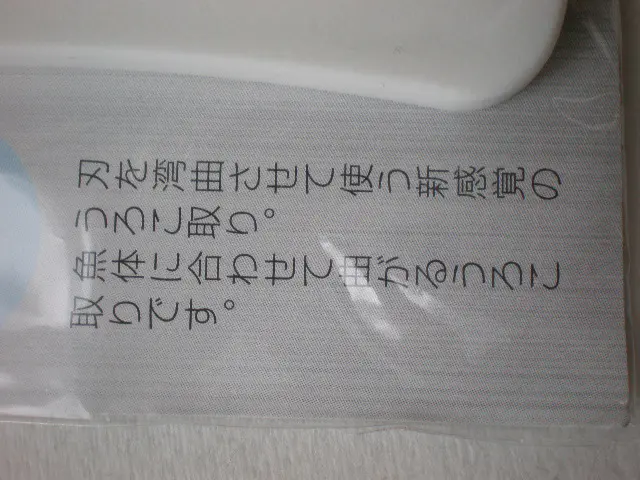 刃を湾曲させて使う新感覚の
うろこ取り。
魚体に合わせて曲がるうろこ
取りです。